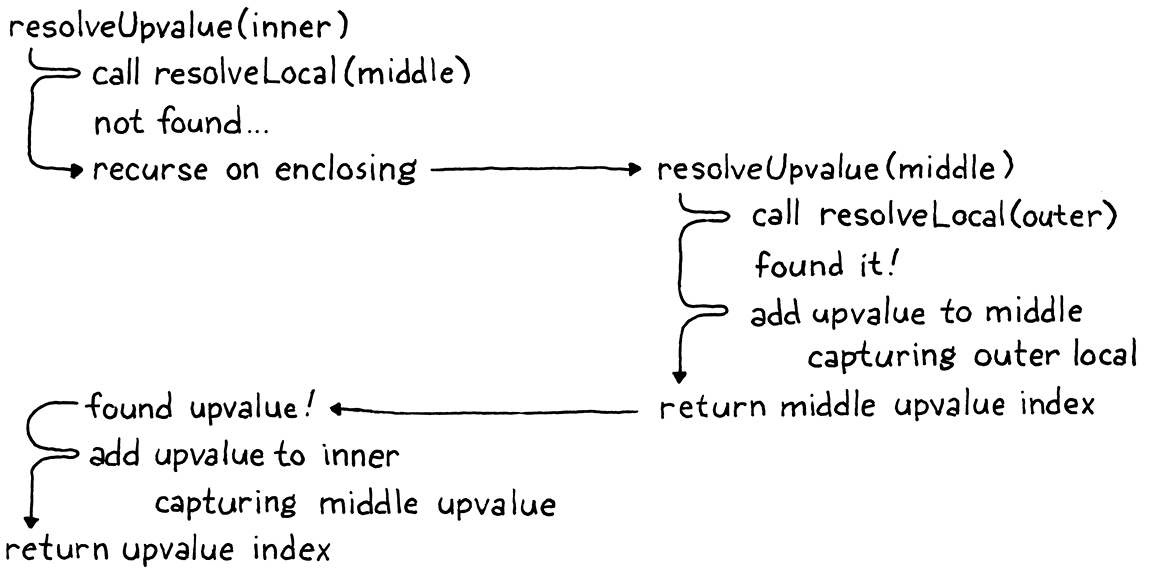 resolveUpvalue(inner)
call resolveLocal(middle)
not found...
recurse on enclosing
resolveUpvalue(middle)
call resolveLocal(outer)
found it!
add upvalue to middle
capturing outer local
return middle upvalue index
found upvalue!
add upvalue to inner
capturing middle upvalue
return upvalue index